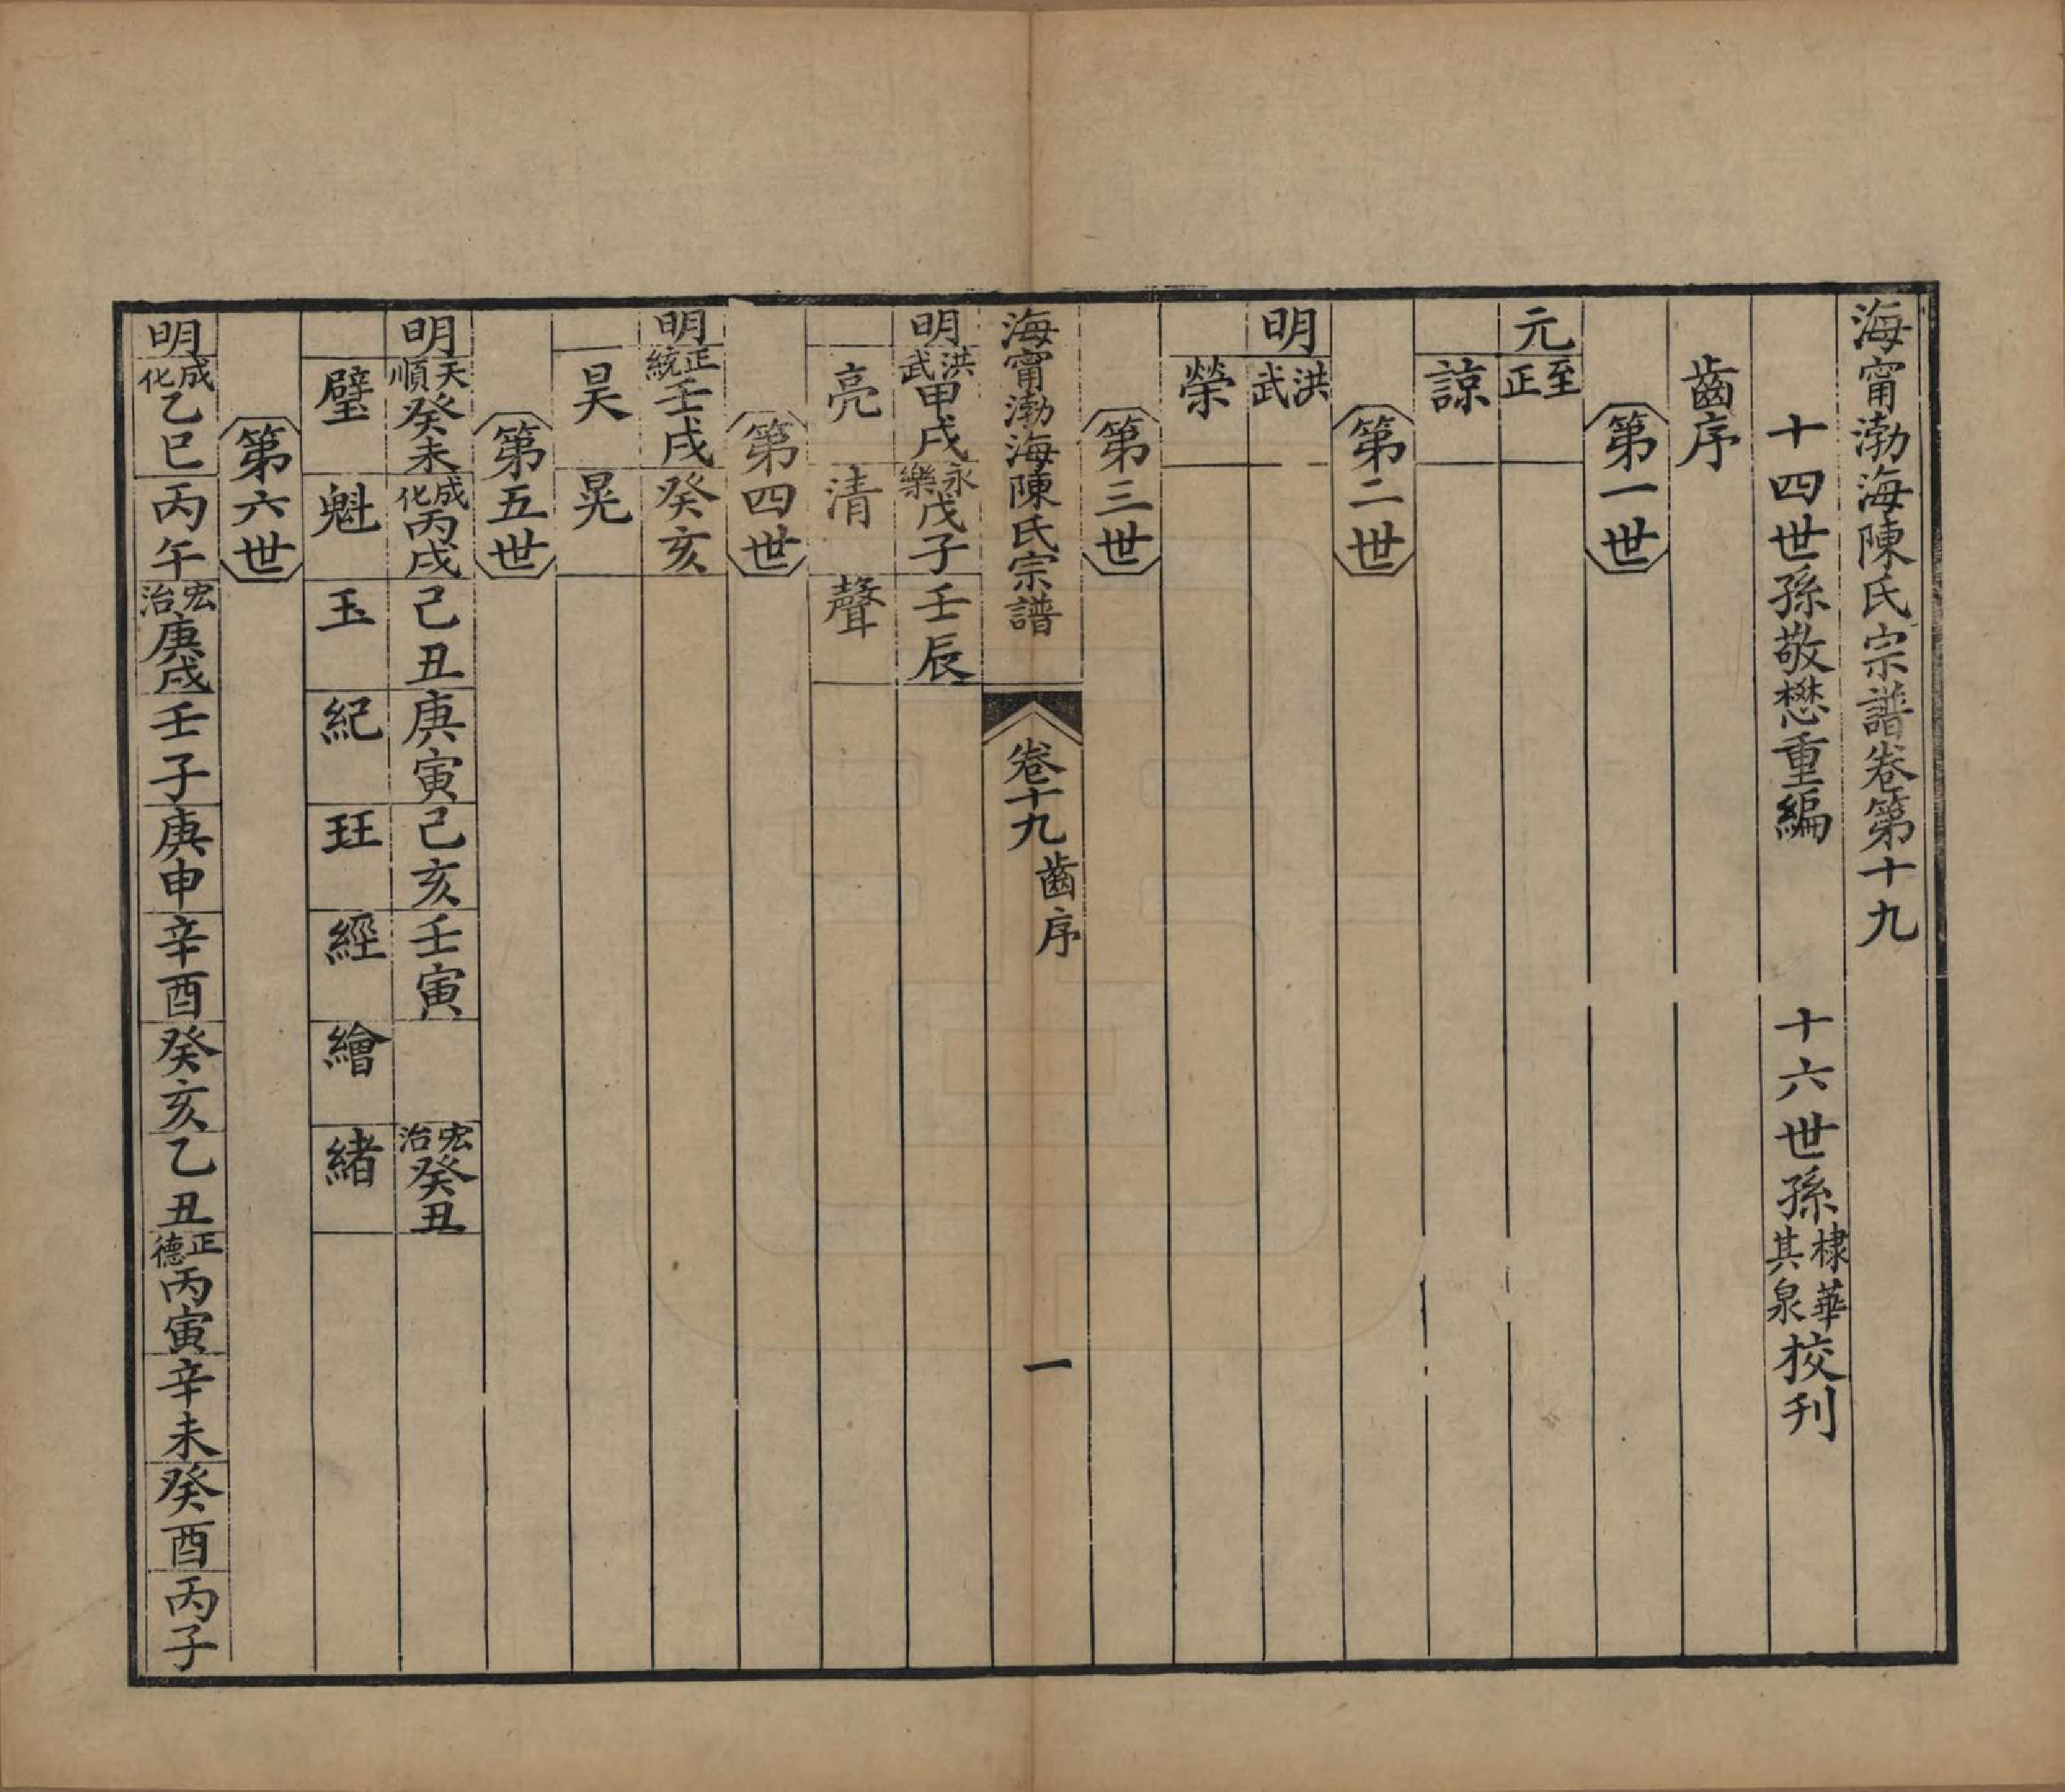 海甯渤海陳氏宗譜卷第十九
十四世孫敬懋重編　十六世孫棣華其泉校刊
齒序
第一世
元至正
諒
第二世
明洪武
榮
第三世
海甯渤海陳氏宗譜　卷十九　齒序　一
明洪武甲戌　永樂戊子　壬辰
亮　清　聲
第四世
明正統壬戌　癸亥
昊　晃
第五世
明天順癸未　成化丙戌　己丑　庚寅　己亥　壬寅　宏治癸丑
璧　魁　玉　紀　玨　經　繪　緒
第六世
明成化乙巳　丙午　宏治庚戌　壬子　庚申　辛酉　癸亥　乙丑　正德丙寅　辛未　癸酉　丙子